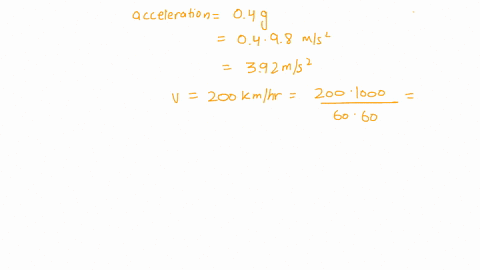 acceleration = 0.4 g
= 0.4 · 9.8 m/s²
= 3.92 m/s²
v = 200 km/hr = 200 · 1000 / 60 · 60 =